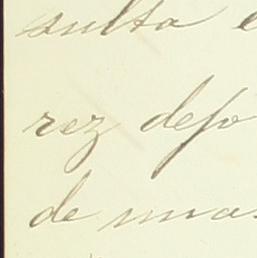 sulta e
rez depo
de una